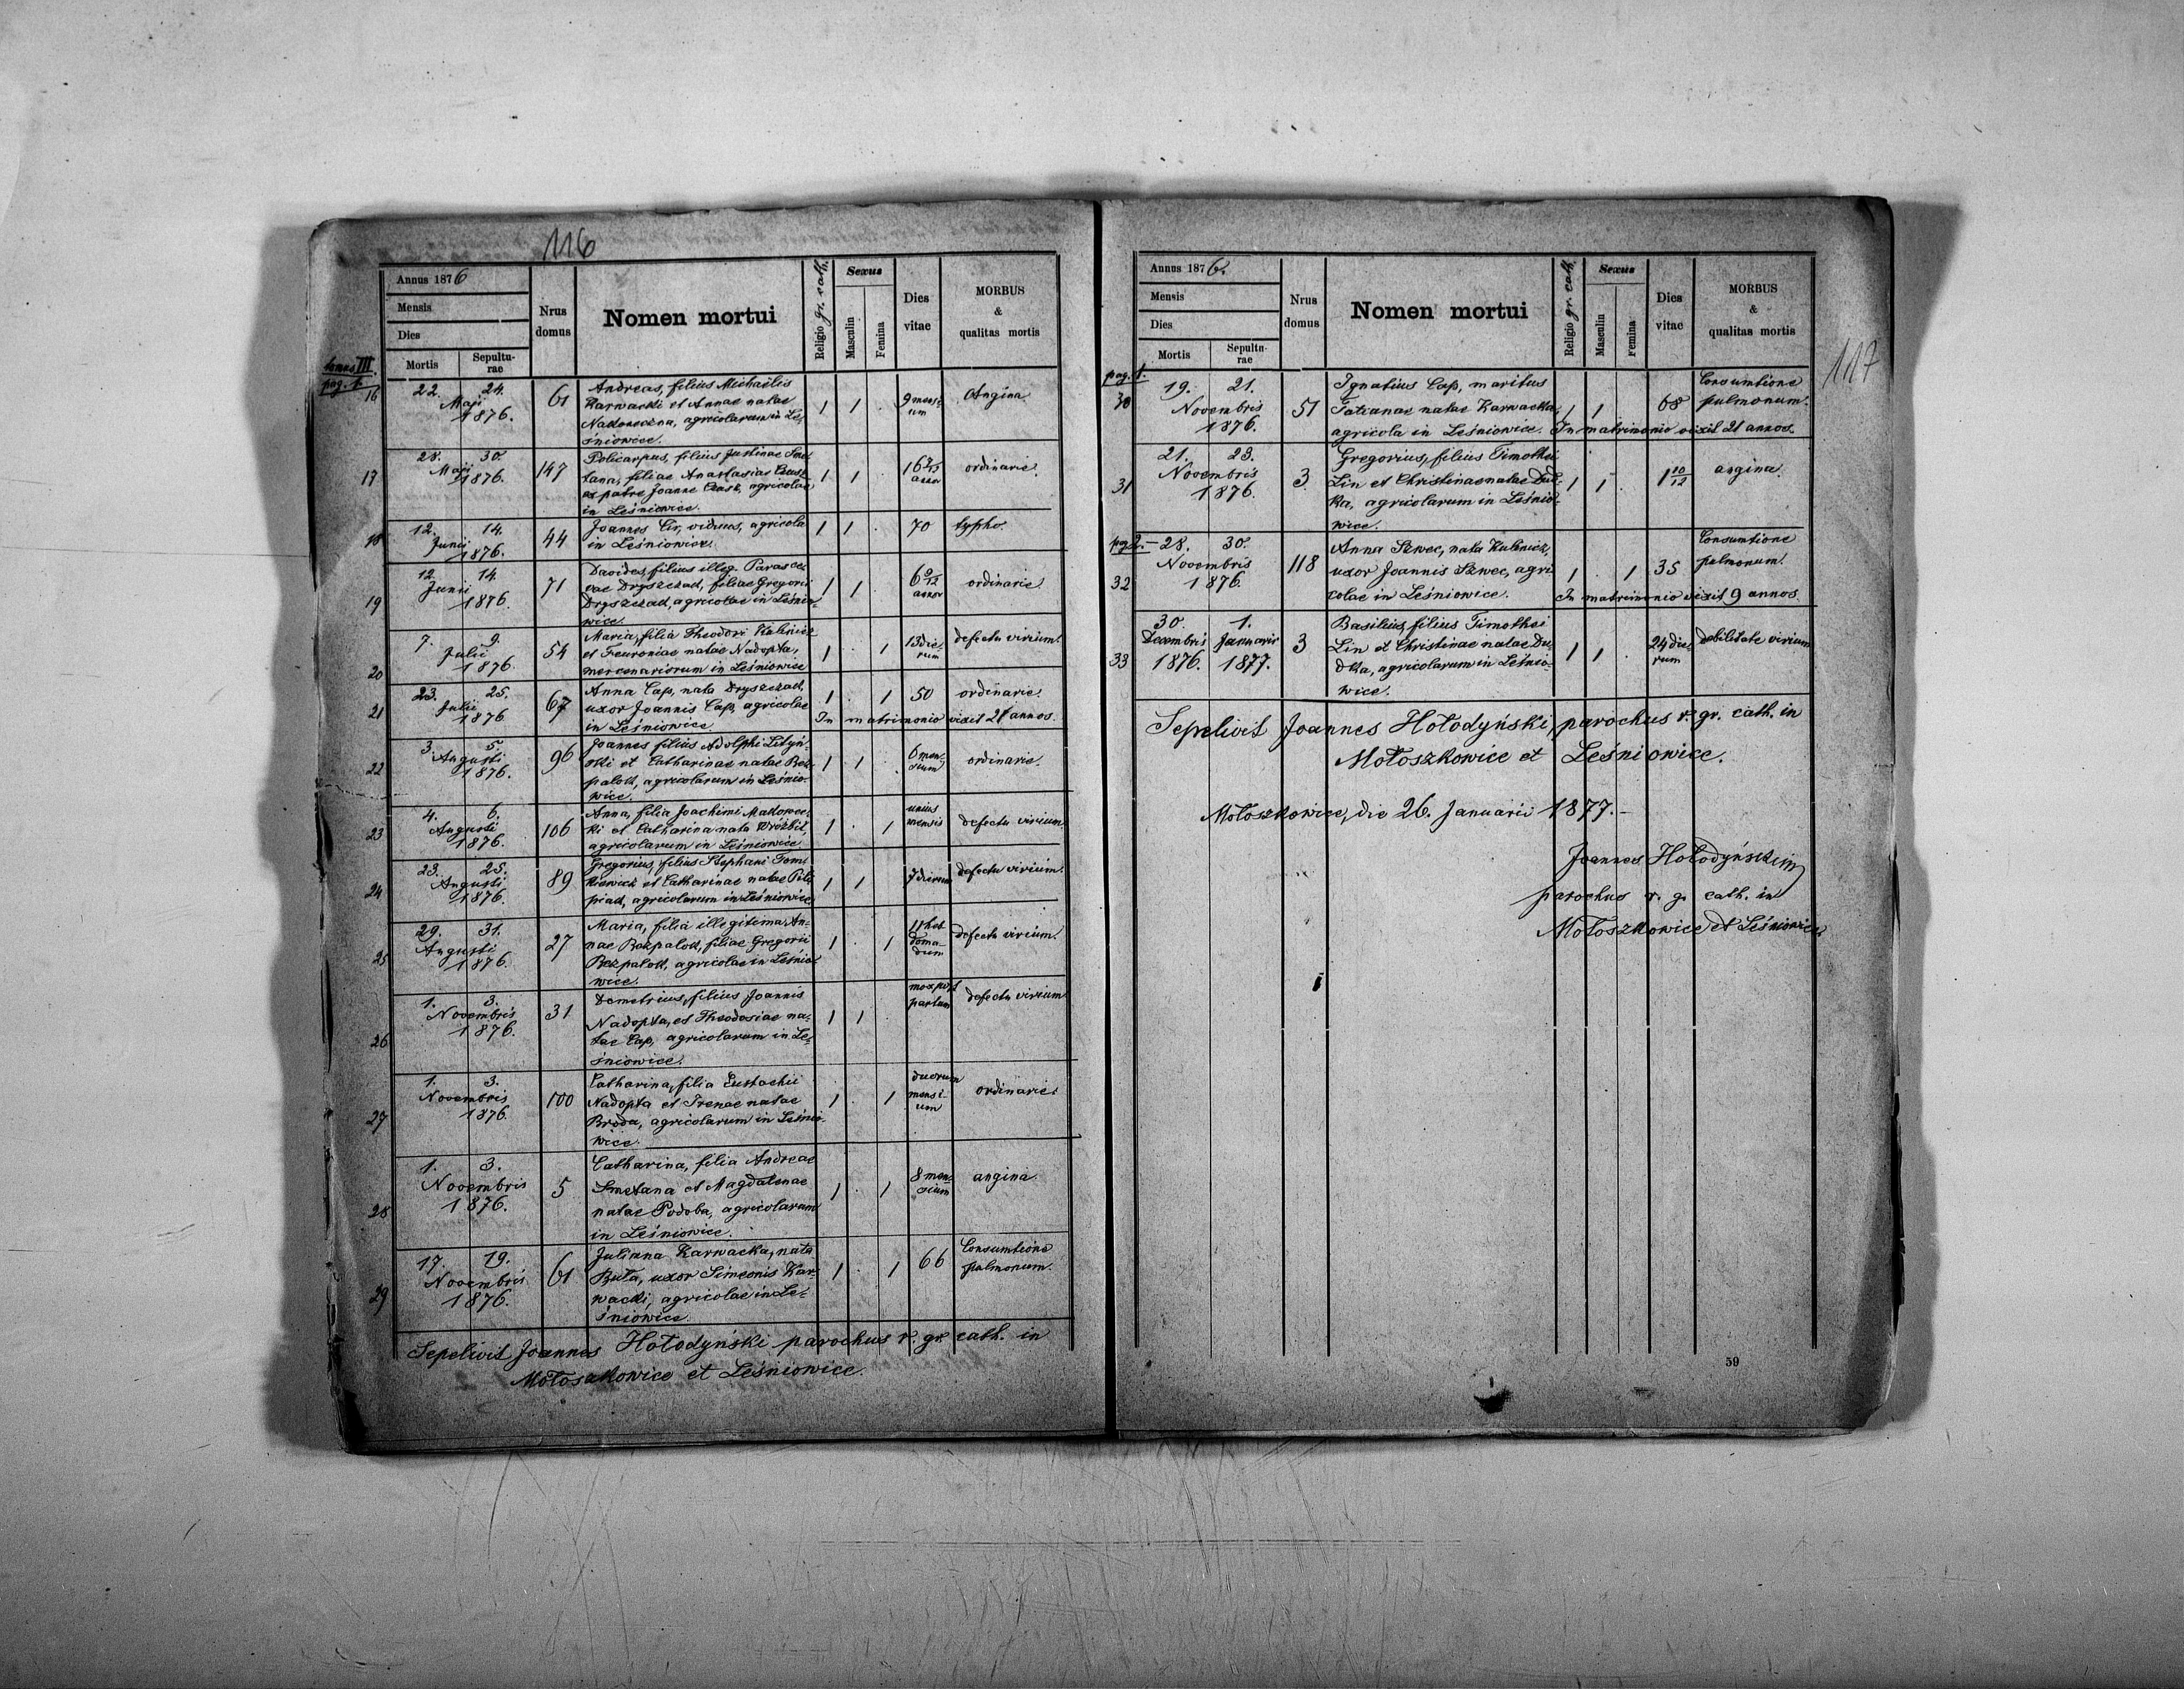 116
Annus 1876
Mensis
Dies
Mortis
Sepulturae
Nrus domus
Nomen mortui
Religio gr. cath.
Sexus
Masculin
Femina
Dies vitae
MORBUS
&
qualitas mortis
tomus III.
pag. 1.
16
22. 24.
Maji
1876.
61
Andreas, filius Michaëlis
Karwacki et Annae natae
Nakoneczna, agricolarum in Le-
śniowice.
1 1 .
9 mensi-
um
Angina
17
28. 30.
Maji
1876.
147
Policarpus, filius Justinae Sme-
tana, filiae Anastasiae
ex patre Joanne agricolae
in Leśniowice.
1 1 .
ordinarie.
18
12. 14.
Junii
1876.
44
Joannes Cir, viduus, agricola
in Leśniowice.
1 1 .
70
typho.
19
12. 14.
Junii
1876.
71
Davides, filius illeg. Parasce-
vae Dryszczak, filiae Gregorii
Dryszczak, agricolae in Leśnio-
wice.
1 1 .
6 9/12
annor
ordinarie.
20
7. 9.
Julii
1876.
54
Maria, filia Theodori Kulinicz
et Feuroniae natae Nadopta,
mercenariorum in Leśniowice
1 . 1
13 die-
rum
defectu virium.
21
23. 25.
Julii
1876
67
Anna Cap, nata Dryszczak,
uxor Joannis Cap, agricolae
in Leśniowice.
1 . 1
50
ordinarie.
In matrimonio vixit 21 annos.
22
3. 5.
Augusti
1876.
96
Joannes filius Adolphi Lityń-
ski et Catharinae natae Bez-
palok, agricolarum in Leśnio-
wice.
1 1 .
6 men-
sium
ordinarie.
23
4. 6.
Augusti
1876.
106
Anna, filia Joachimi Makowec-
ki et Catharina nata Worobil,
agricolarum in Leśniowice.
1 . 1
unius
mensis
defectu virium.
24
23. 25.
Augusti
1876.
89
Gregorius, filius Stephani Tom-
kiewicz et Catharinae natae Pili-
piak, agricolarum in Leśniowice.
1 1
7 dierum
defectu virium.
25
29. 31.
Augusti
1876.
27
Maria, filia illegitima An-
nae Bezpalok, filiae Gregorii
Bezpalok, agricolae in Leśnio-
wice.
1 . 1
11 heb-
doma-
dum
defectu virium.
26
1. 3.
Novembris
1876.
31
Demetrius, filius Joannis
Nadopta, et Theodosiae na-
tae Cap, agricolarum in Le-
śniowice.
1 1 .
mox post
partum
defectu virium
27
1. 3.
Novembris
1876.
100
Catharina, filia Eustachii
Nadopta et Irenae natae
Broda, agricolarum in Leśnio-
wice.
1 . 1
duorum
mensi-
um
ordinarie.
28
1. 3.
Novembris
1876.
5
Catharina, filia Andreae
Smetana et Magdalenae
natae Podoba, agricolarum
in Leśniowice.
1 . 1
8 men-
sium
angina.
29
17. 19.
Novembris
1876.
61
Juliana Karwacka, nata
Buta, uxor Simeonis Kar-
wacki, agricolae in Le-
śniowice.
1 . 1
66
Consumtione
pulmonum.
Sepelivit Joannes Hołodyński parochus r. gr. cath. in
Mołoszkowice et Leśniowice.
117
Annus 1876.
Mensis
Dies
Mortis
Sepulturae
Nrus domus
Nomen mortui
Religio gr. cath.
Sexus
Masculin
Femina
Dies vitae
MORBUS
&
qualitas mortis
pag. 1.
30
19. 21.
Novembris
1876.
51
Ignatius Cap, maritus
Tatianae natae Karwacka,
agricola in Leśniowice.
1 1
68
Consumtione
pulmonum.
In matrimonio vixit 21 annos.
31
21. 23.
Novembris
1876.
3
Gregorius, filius Timothei
Lin et Christinae natae Dud-
ka, agricolarum in Leśnio-
wice.
1 1 .
1 10/12
angina
pag. 2.
32
28. 30.
Novembris
1876.
118
Anna Szwec, nata Kulinicz,
uxor Joannis Szwec, agri-
colae in Leśniowice.
1 . 1
35
Consumtione
pulmonum.
In matrimonio vixit 9 annos.
33
30. 1.
Decembris Januarii
1876. 1877.
3
Basilius, filius Timothei
Lin et Christinae natae Du-
dka, agricolarum in Leśnio-
wice.
1 1 .
24 die-
rum
debilitate virium
Sepelivit Joannes Hołodyński, parochus r. gr. cath. in
Mołoszkowice et Leśniowice.
Mołoszkowice, die 26. Januarii 1877.
Joannes Hołodyński
parochus r. g. cath. in
Mołoszkowice et Leśniowice
59